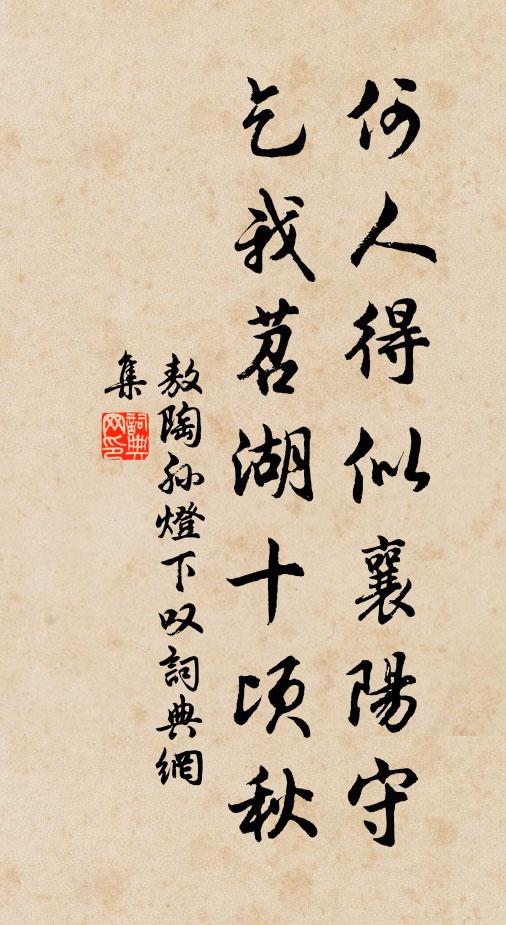 何人得似襄陽守
乞我苕湖十頃秋
敖陶孫燈下叹詞典網
集
詞典網印